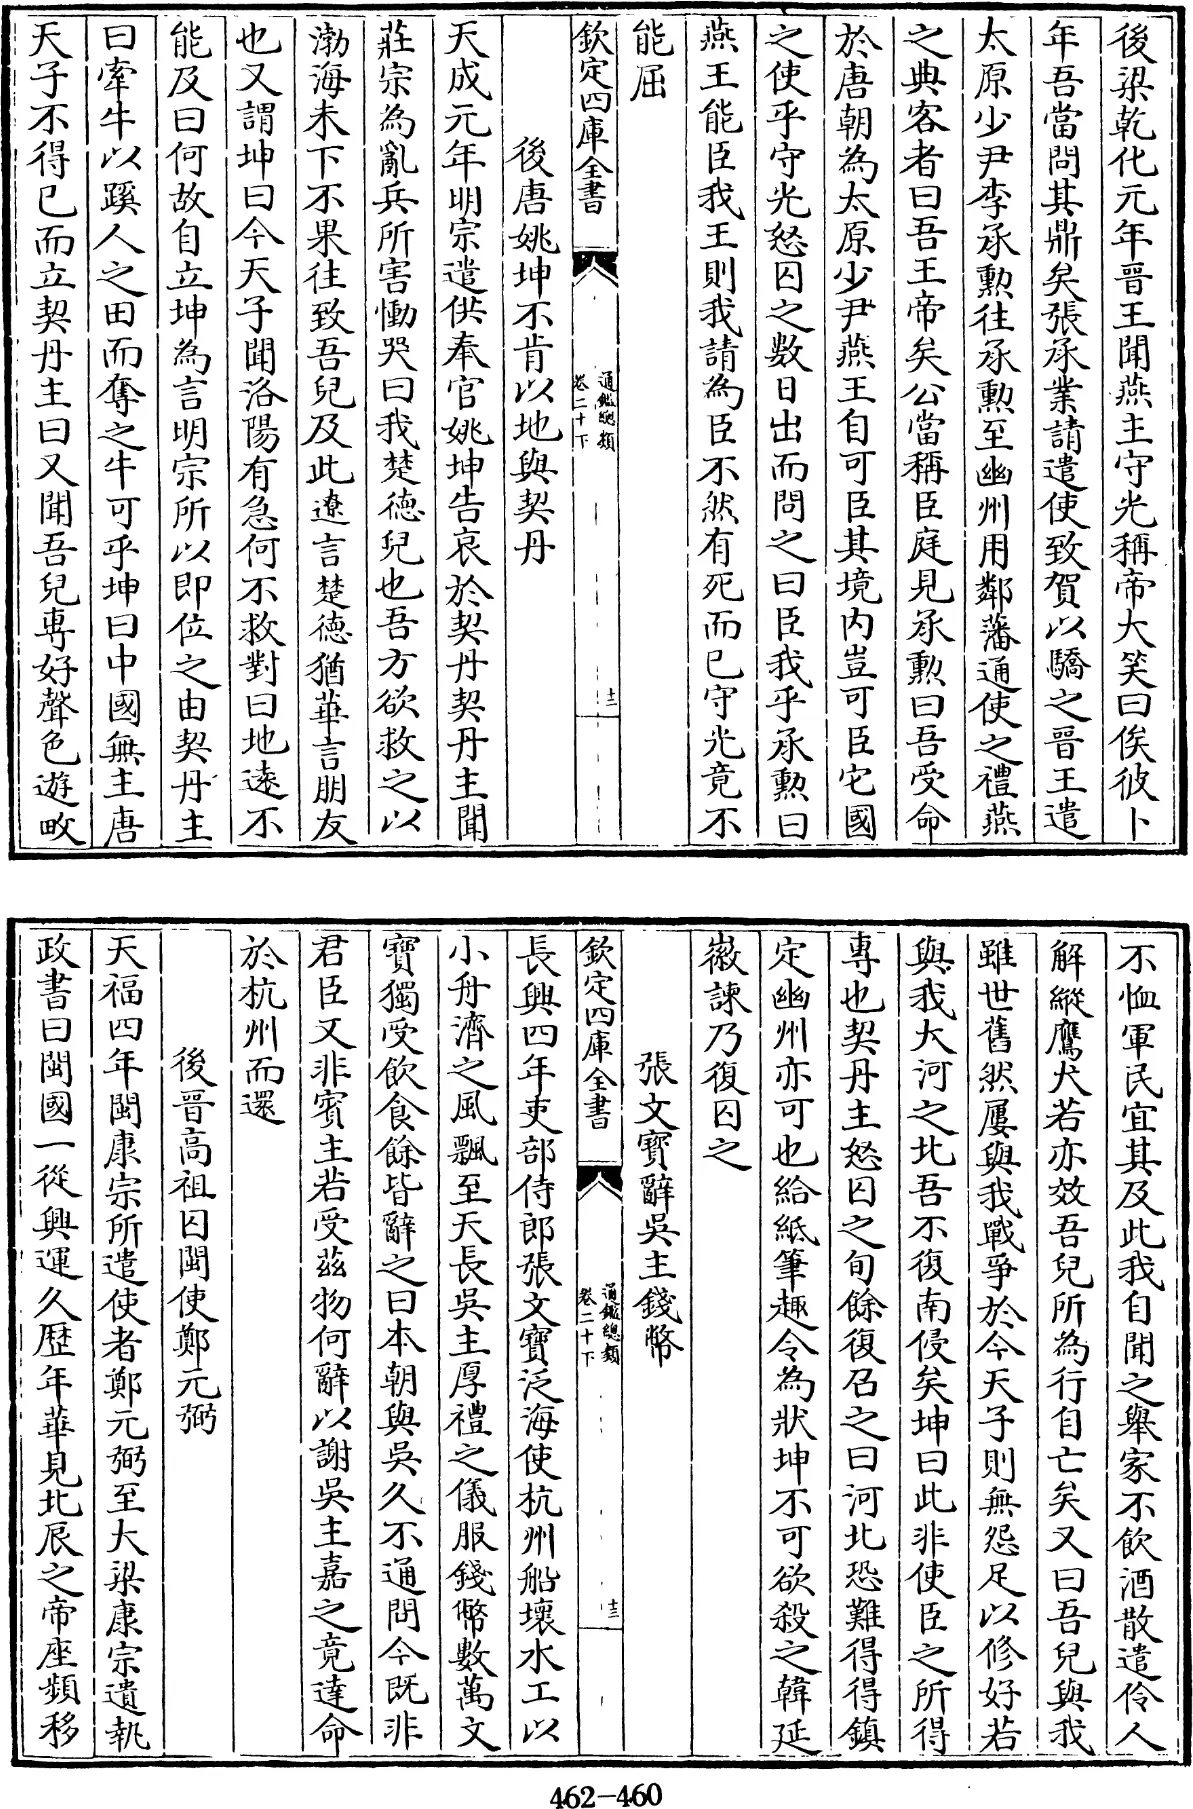 後梁乾化元年晉王聞燕主守光稱帝大笑曰俟彼卜
年吾當問其鼎矣張承業請遣使致賀以驕之晉王遣
太原少尹李承勲往承勲至幽州用鄰藩通使之禮燕
之典客者曰吾王帝矣公當稱臣庭見承勲曰吾受命
於唐朝為太原少尹燕王自可臣其境内豈可臣它國
之使乎守光怒囚之數日出而問之曰臣我乎承勲曰
燕王能臣我王則我請為臣不然有死而已守光竟不
能屈
欽定四庫全書
通鑑總類
卷二十下
十二
後唐姚坤不肯以地與契丹
天成元年明宗遣供奉官姚坤告哀於契丹契丹主聞
莊宗為亂兵所害慟哭曰我楚德兒也吾方欲救之以
渤海未下不果往致吾兒及此遼言楚德猶華言朋友
也又謂坤曰今天子聞洛陽有急何不救對曰地遠不
能及曰何故自立坤為言明宗所以即位之由契丹主
曰牽牛以蹊人之田而奪之牛可乎坤曰中國無主唐
天子不得已而立契丹主曰又聞吾兒專好聲色遊畋
不恤軍民宜其及此我自聞之舉家不飲酒散遣伶人
解縱鷹犬若亦效吾兒所為行自亡矣又曰吾兒與我
雖世舊然屢與我戰爭於今天子則無怨足以修好若
與我大河之北吾不復南侵矣坤曰此非使臣之所得
專也契丹主怒囚之旬餘復召之曰河北恐難得得鎮
定幽州亦可也給紙筆趣令為狀坤不可欲殺之韓延
徽諫乃復囚之
張文寶辭吳主錢幣
欽定四庫全書
通鑑總類
卷二十下
十三
長興四年吏部侍郎張文寶泛海使杭州船壞水工以
小舟濟之風飄至天長吳主厚禮之儀服錢幣數萬文
寶獨受飲食餘皆辭之曰本朝與吳久不通問今既非
君臣又非賓主若受茲物何辭以謝吳主嘉之竟達命
於杭州而還
後晉高祖囚閩使鄭元弼
天福四年閩康宗所遣使者鄭元弼至大梁康宗遺執
政書曰閩國一從興運久歷年華見北辰之帝座頻移
462-460